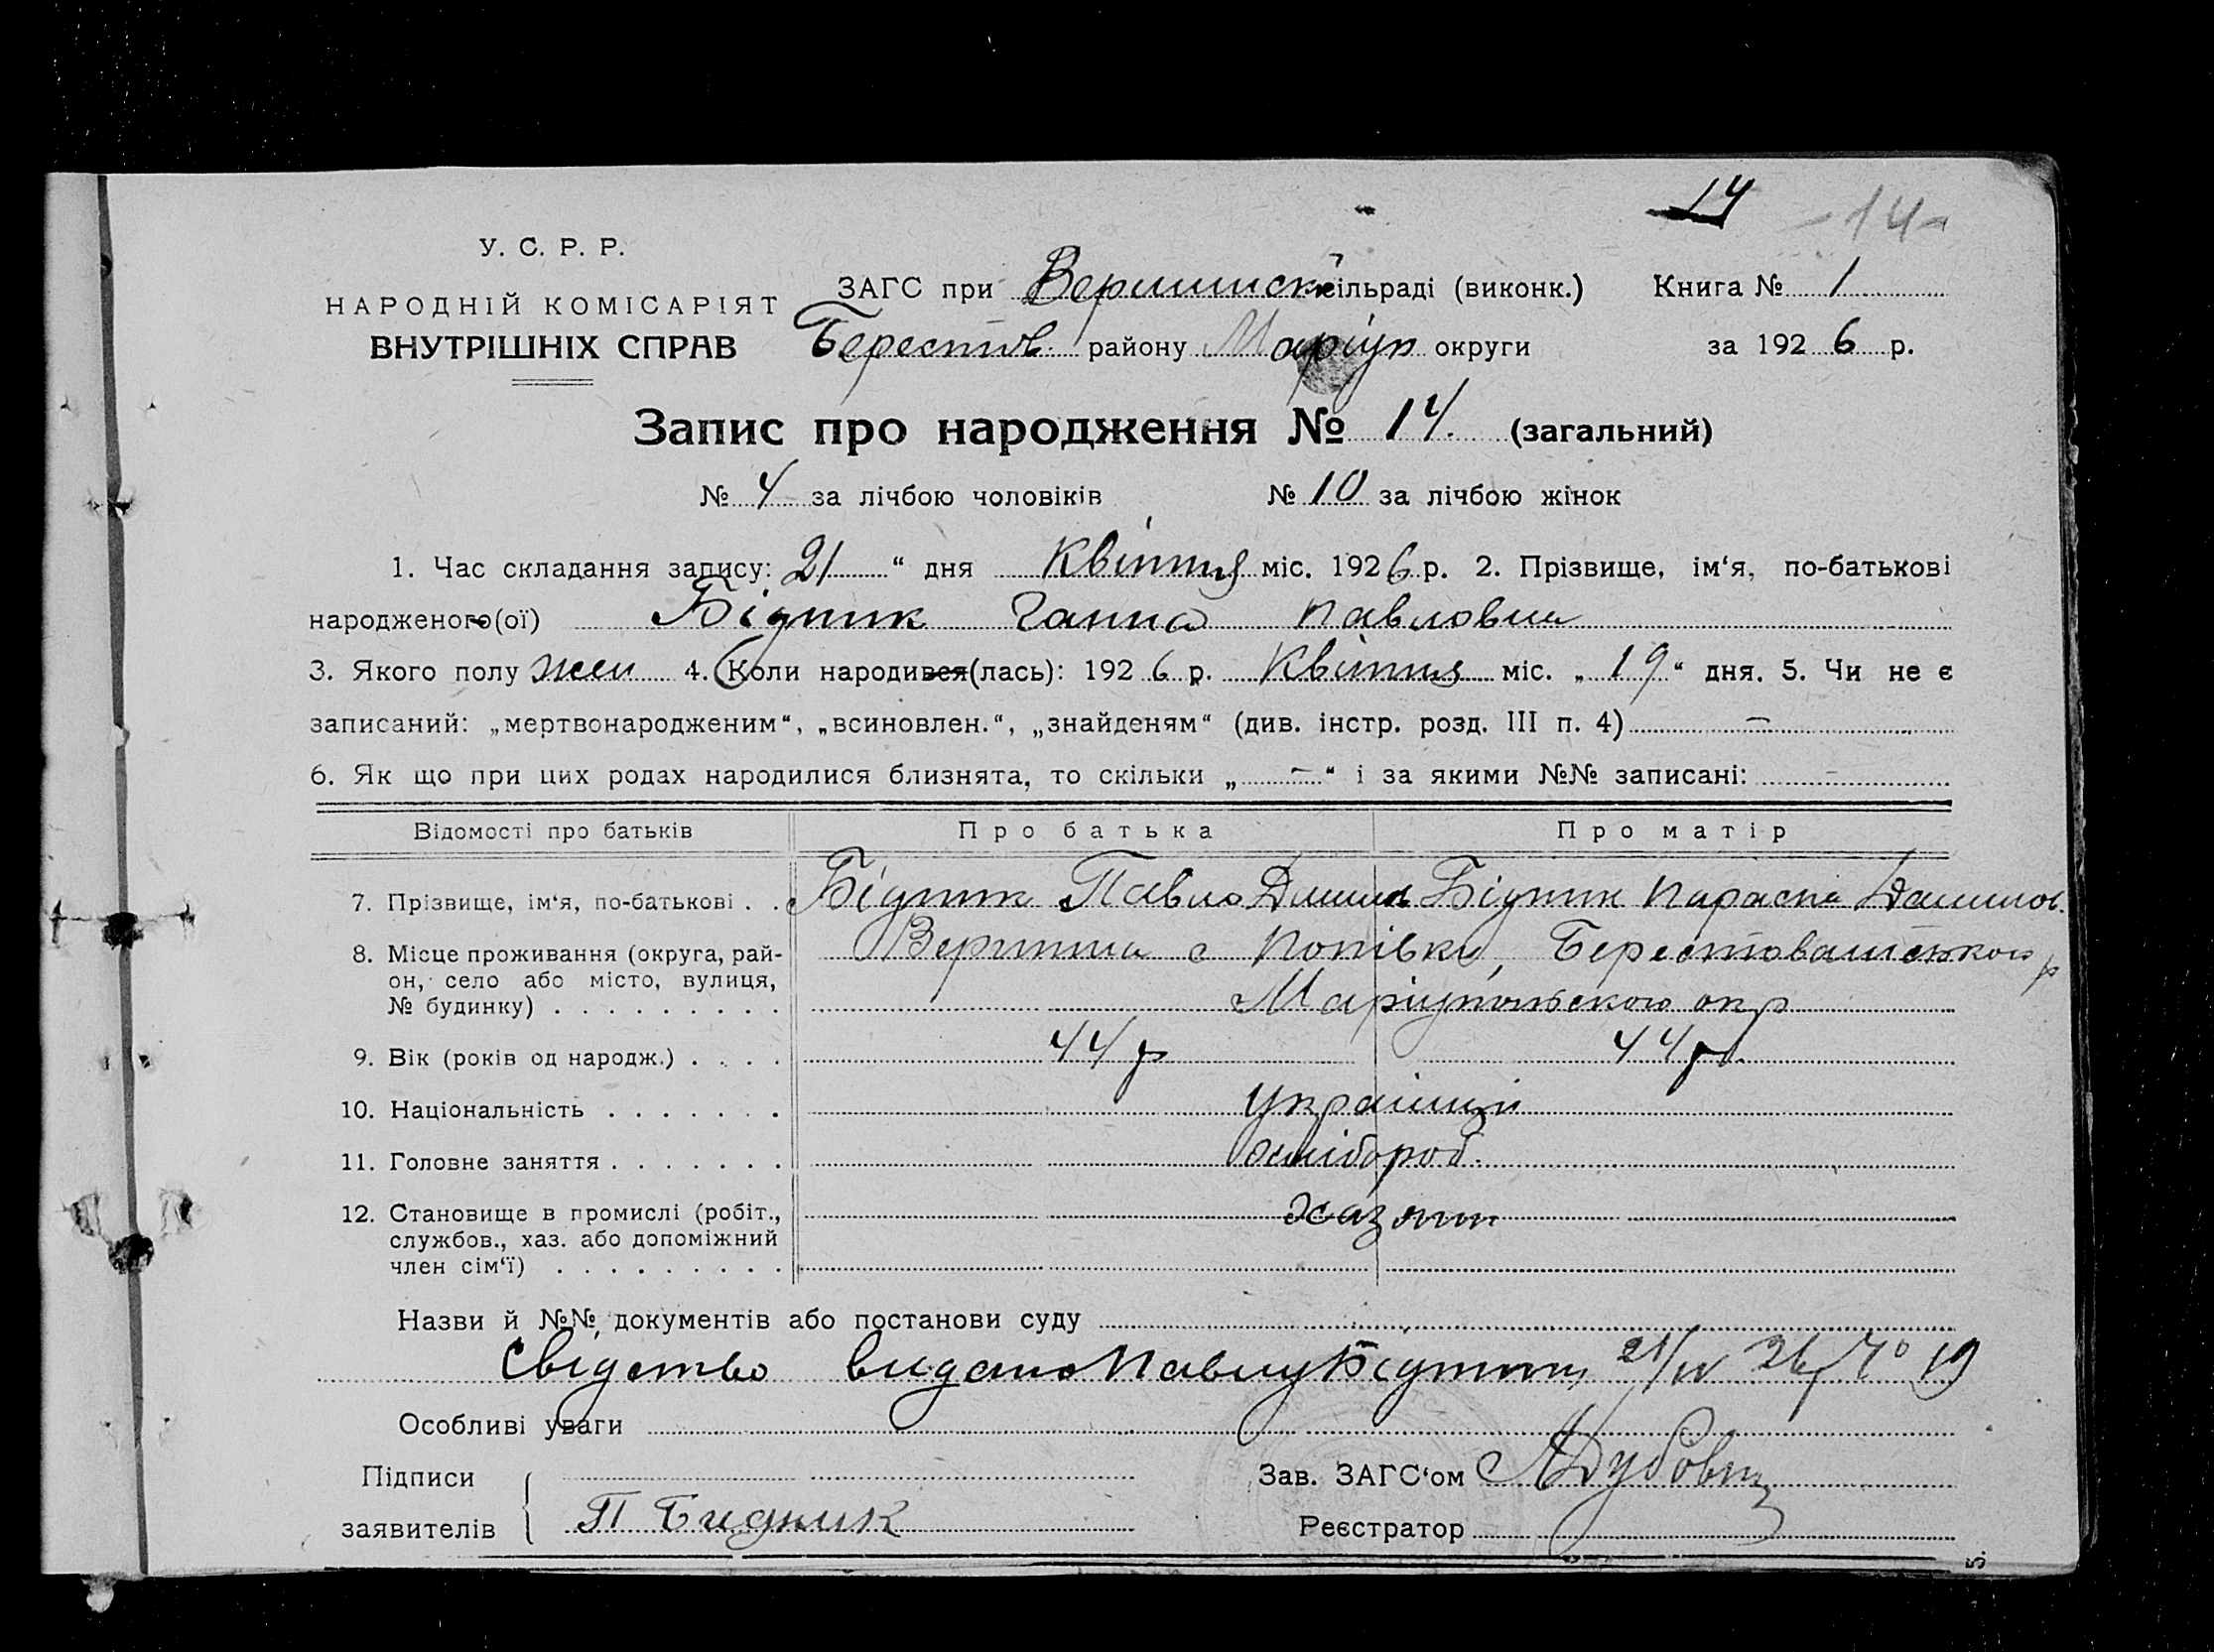 14 -14-
У. С. Р. Р.
НАРОДНІЙ КОМІСАРІЯТ
ВНУТРІШНІХ СПРАВ
ЗАГС при сільраді (виконк.) Книга № 1
Берестов. району Маріуп округи за 1926 р.
Запис про народження № 14. (загальний)
№ 4 за лічбою чоловіків № 10 за лічбою жінок
1. Час складання запису: 21 “ дня Квітня міс. 1926 р. 2. Прізвище, ім‘я, по-батькові
народженого(ої) Бідник Ганна Павловна
3. Якого полу жен 4. Коли народився(лась): 1926 р. Квітня міс. „ 19 “ дня. 5. Чи не є
записаний: „мертвонародженим“, „всиновлен.“, „знайденям“ (див. інстр. розд. III п. 4) —
6. Як що при цих родах народилися близнята, то скільки „ — “ і за якими №№ записані: -
Відомості про батьків Про батька Про матір
7. Прізвище, ім‘я, по-батькові . . Бідник Павло Бідник Параска Данилов.
8. Місце проживання (округа, рай-
он, село або місто, вулиця,
№ будинку) . . . . . . . . .
с Попівка, р
Маріупольської окр
9. Вік (років од народж.) . . . . 44 р 44 р.
10. Національність . . . . . . . українці
11. Головне заняття . . . . . . . хлібороб.
12. Становище в промислі (робіт.,
службов., хаз. або допоміжний
член сім‘ї) . . . . . . . . .
хазяин
Назви й №№ документів або постанови суду
Свідство видано Павлу Бідник 21/IV 26 р № 19
Особливі уваги
Підписи
заявителів
П Бидник
Зав. ЗАГС‘ом
Реєстратор
5.